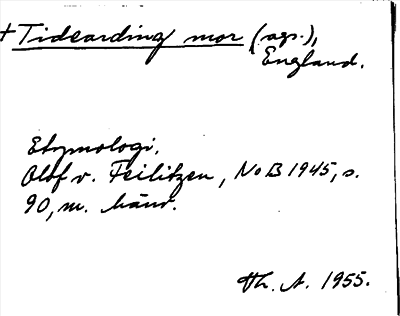 + Tidearding mor (ags.),
England.
Etymologi.
Olof v. Feilitzen, NoB 1945, s.
90, m. hänv.
Th. A. 1955.